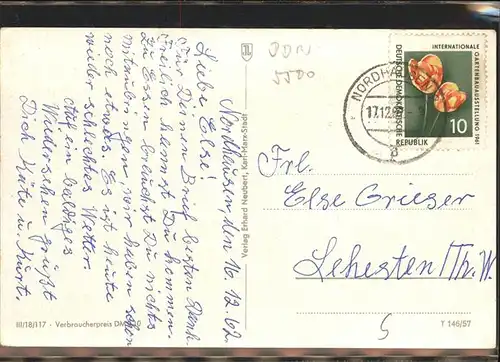 Nordhausen den 16.12.62.
Liebe Else!
Für Deinen Brief besten Dank.
Freilich kannst Du kommen.
Zu Essen brauchst Du nichts
mitzubringen, wir haben schon
noch etwas. Es ist heute
wieder schlechtes Wetter.
Auf ein baldiges
Wiedersehen grüßt
Dich Käte u. Kurt.
III/18/117 - Verbraucherpreis DM
Verlag Erhard Neubert, Karl-Marx-Stadt
DDR
5500
INTERNATIONALE
GARTENBAUAUSSTELLUNG 1961
DEUTSCHE DEMOKRATISCHE
REPUBLIK
10
NORDHAUSEN
17.12.62
a
Frl.
Else Grieser
Lehesten/Th. W.
5
T 146/57